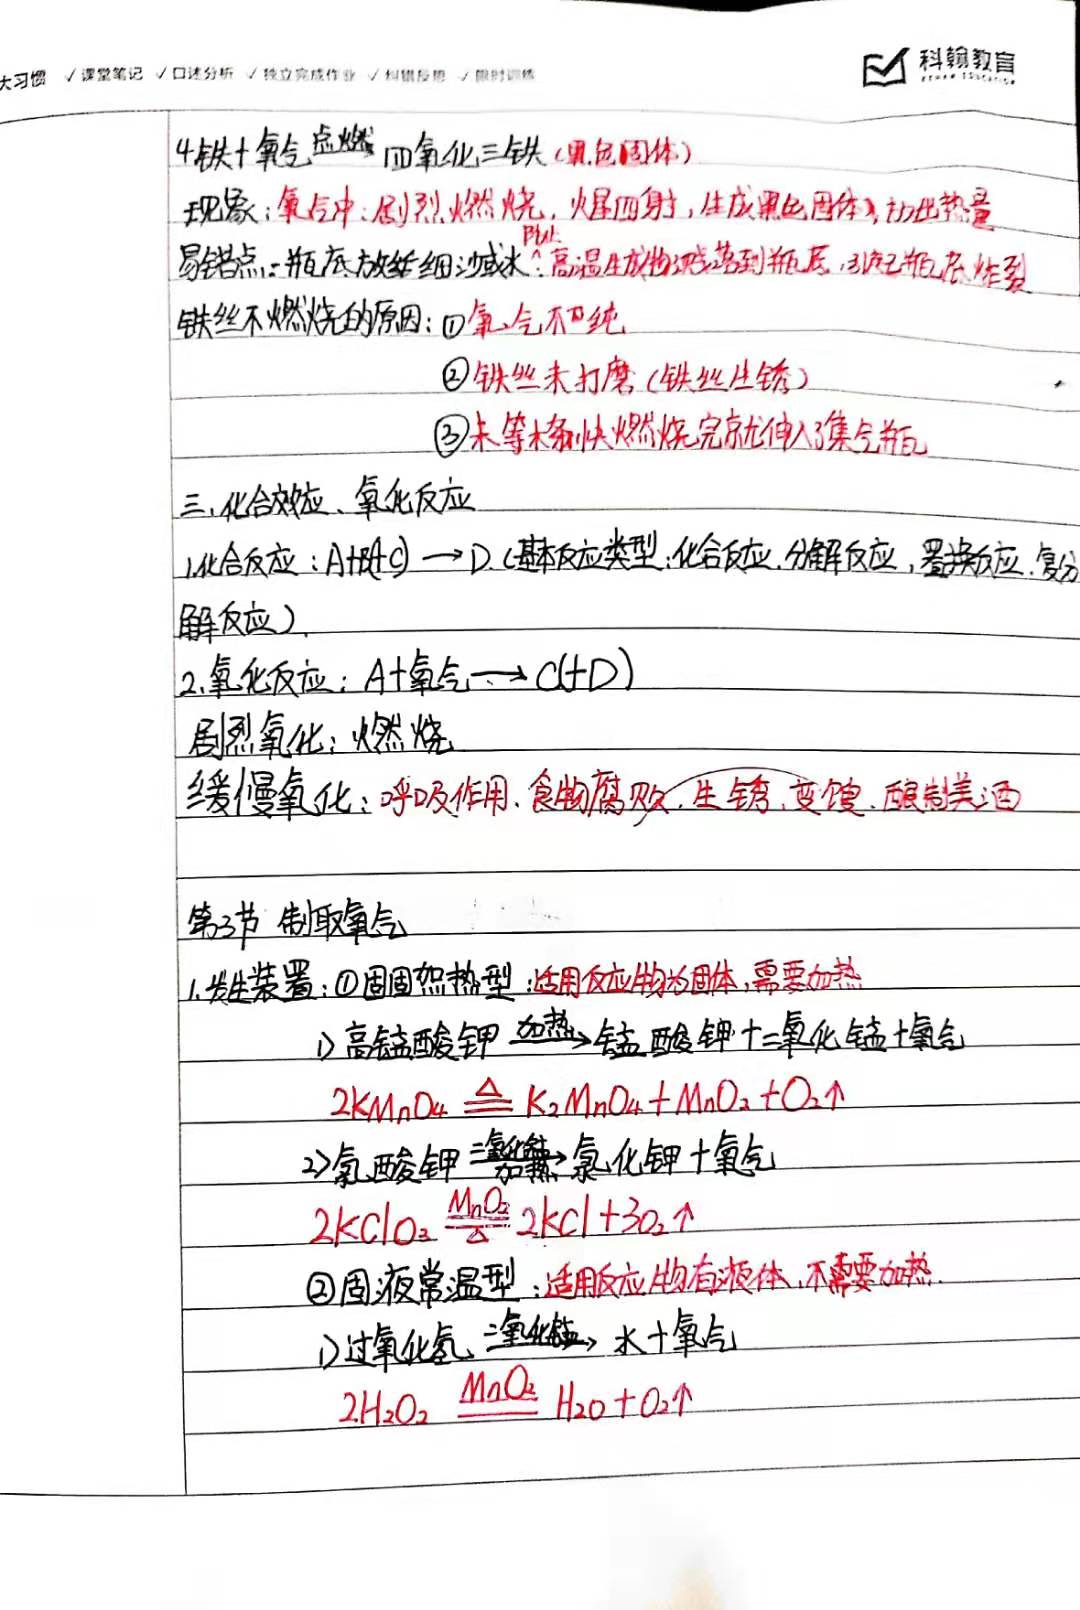 大习惯 ✓课堂笔记 ✓口述分析 ✓独立完成作业 ✓纠错反思 ✓限时训练
科翰教育
4.铁+氧气 点燃 四氧化三铁(黑色固体)
现象:氧气中:剧烈燃烧,火星四射,生成黑色固体,放出热量
易错点:瓶底放细沙或水:防止高温生成物溅落到瓶底,引起瓶底炸裂
铁丝不燃烧的原因:①氧气不纯
②铁丝未打磨(铁丝生锈)
③未等木条快燃烧完就伸入了集气瓶
三.化合效应、氧化反应
1.化合反应:A+B(+C)→D.(基本反应类型:化合反应.分解反应,置换反应.复分
解反应)
2.氧化反应:A+氧气→C(+D)
剧烈氧化:燃烧
缓慢氧化:呼吸作用.食物腐败.生锈.变馊.酿制美酒
第3节 制取氧气
1.发生装置:①固固加热型:适用反应物为固体,需要加热
1)高锰酸钾 加热→ 锰酸钾+二氧化锰+氧气
2KMnO4 △ K2MnO4+MnO2+O2↑
2)氯酸钾 二氧化锰 加热→ 氯化钾+氧气
2KClO3 MnO2 △ 2KCl+3O2↑
②固液常温型:适用反应物有液体.不需要加热.
1)过氧化氢 二氧化锰→ 水+氧气
2H2O2 MnO2 H2O+O2↑